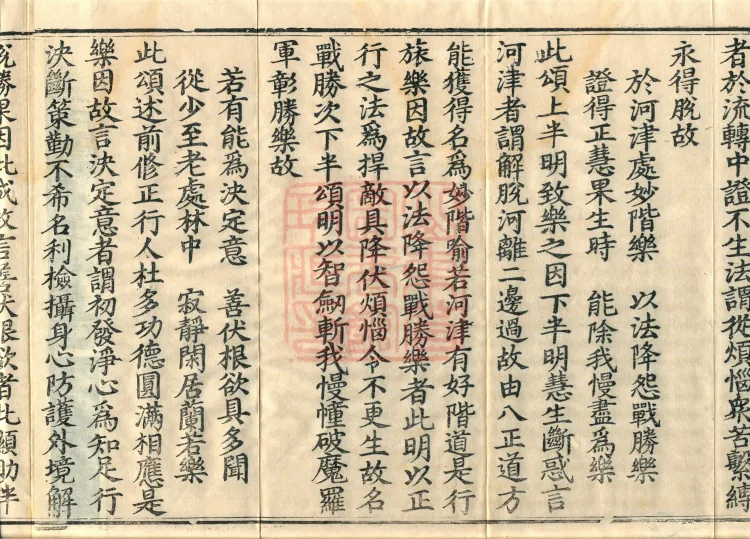 者於流轉中證不生法謂從煩惱衆苦繫縛
永得脫故
於河津處妙階樂　以法降怨戰勝樂
證得正慧果生時　能除我慢盡爲樂
此頌上半明致樂之因下半明慧生斷惑言
河津者謂解脫河離二邊過故由八正道方
能獲得名爲妙階喻若河津有好階道是行
旅樂因故言以法降怨戰勝樂者此明以正
行之法爲捍敵具降伏煩惱令不更生故名
戰勝次下半頌明以智劒斬我慢幢破魔羅
軍彰勝樂故
若有能爲決定意　善伏根欲具多聞
從少至老處林中　寂靜閑居蘭若樂
此頌述前修正行人杜多功德圓滿相應是
樂因故言決定意者謂初發淨心爲知足行
決斷策勤不希名利檢攝身心防護外境解
脫勝果因此成故言善伏根欲者此顯助半